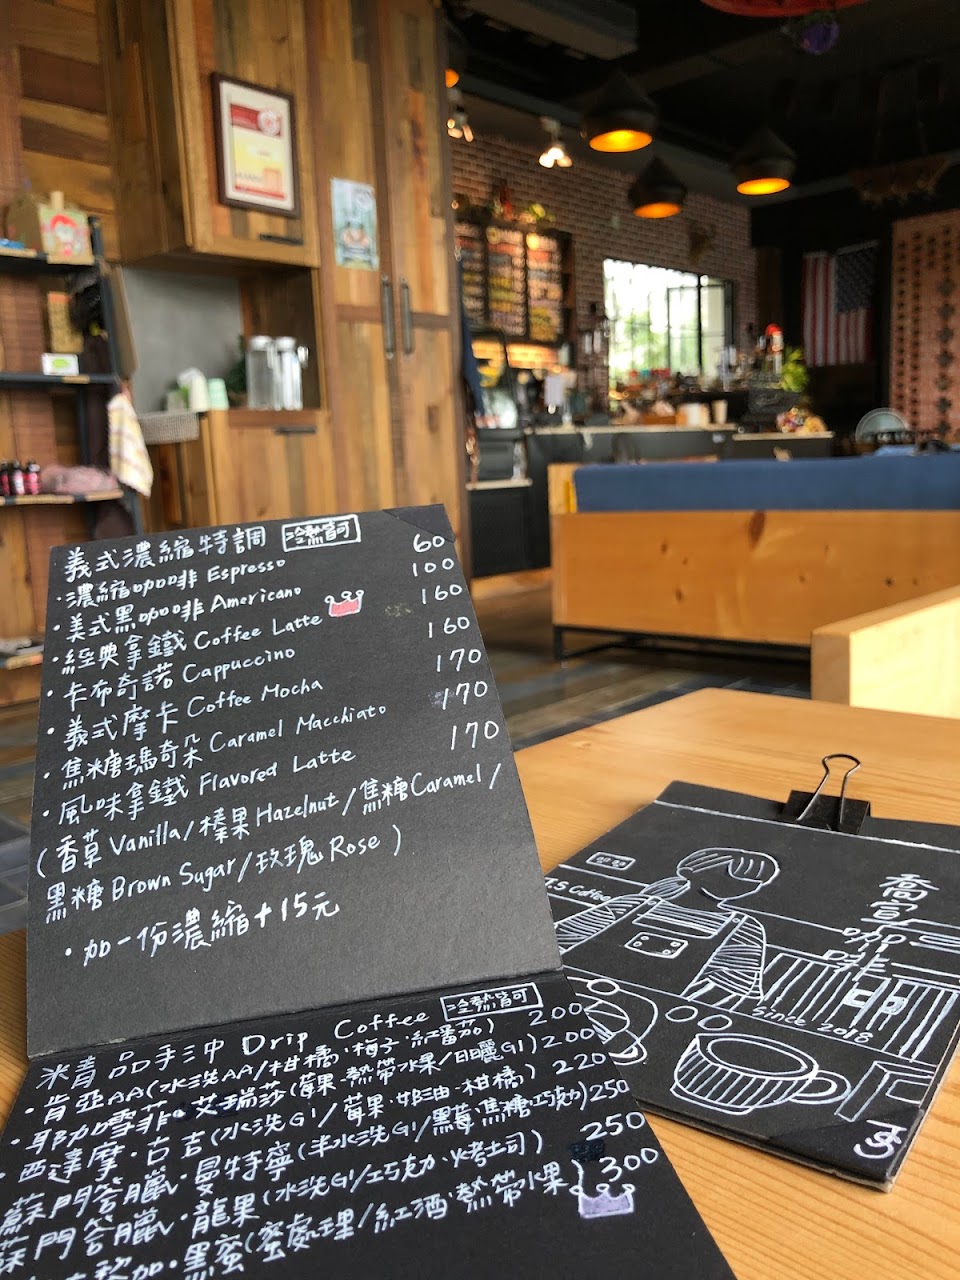 義式濃縮特調 冷熱皆可
·濃縮咖啡 Espresso 60
·美式黑咖啡 Americano 100
·經典拿鐵 Coffee Latte 160
·卡布奇諾 Cappuccino 160
·義式摩卡 Coffee Mocha 170
·焦糖瑪奇朵 Caramel Macchiato 170
·風味拿鐵 Flavored Latte 170
(香草Vanilla/榛果Hazelnut/焦糖Caramel/
黑糖Brown Sugar/玫瑰Rose)
·加一份濃縮+15元
精品手沖 Drip Coffee 冷熱皆可
·肯亞AA(水洗AA/柑橘·梅子·紅番茄) 200
·耶加雪菲·艾瑞莎(莓果·熱帶水果/日曬G1) 200
·西達摩·古吉(水洗G1/莓果·奶油·柑橘) 220
蘇門答臘·曼特寧(半水洗G1/黑莓·焦糖·巧克力) 250
蘇門答臘·龍果(水洗G1/巧克力·烤土司) 250
黎加·黑蜜(蜜處理/紅酒·熱帶水果) 300
J.S Coffee
喬宣咖啡
since 2018